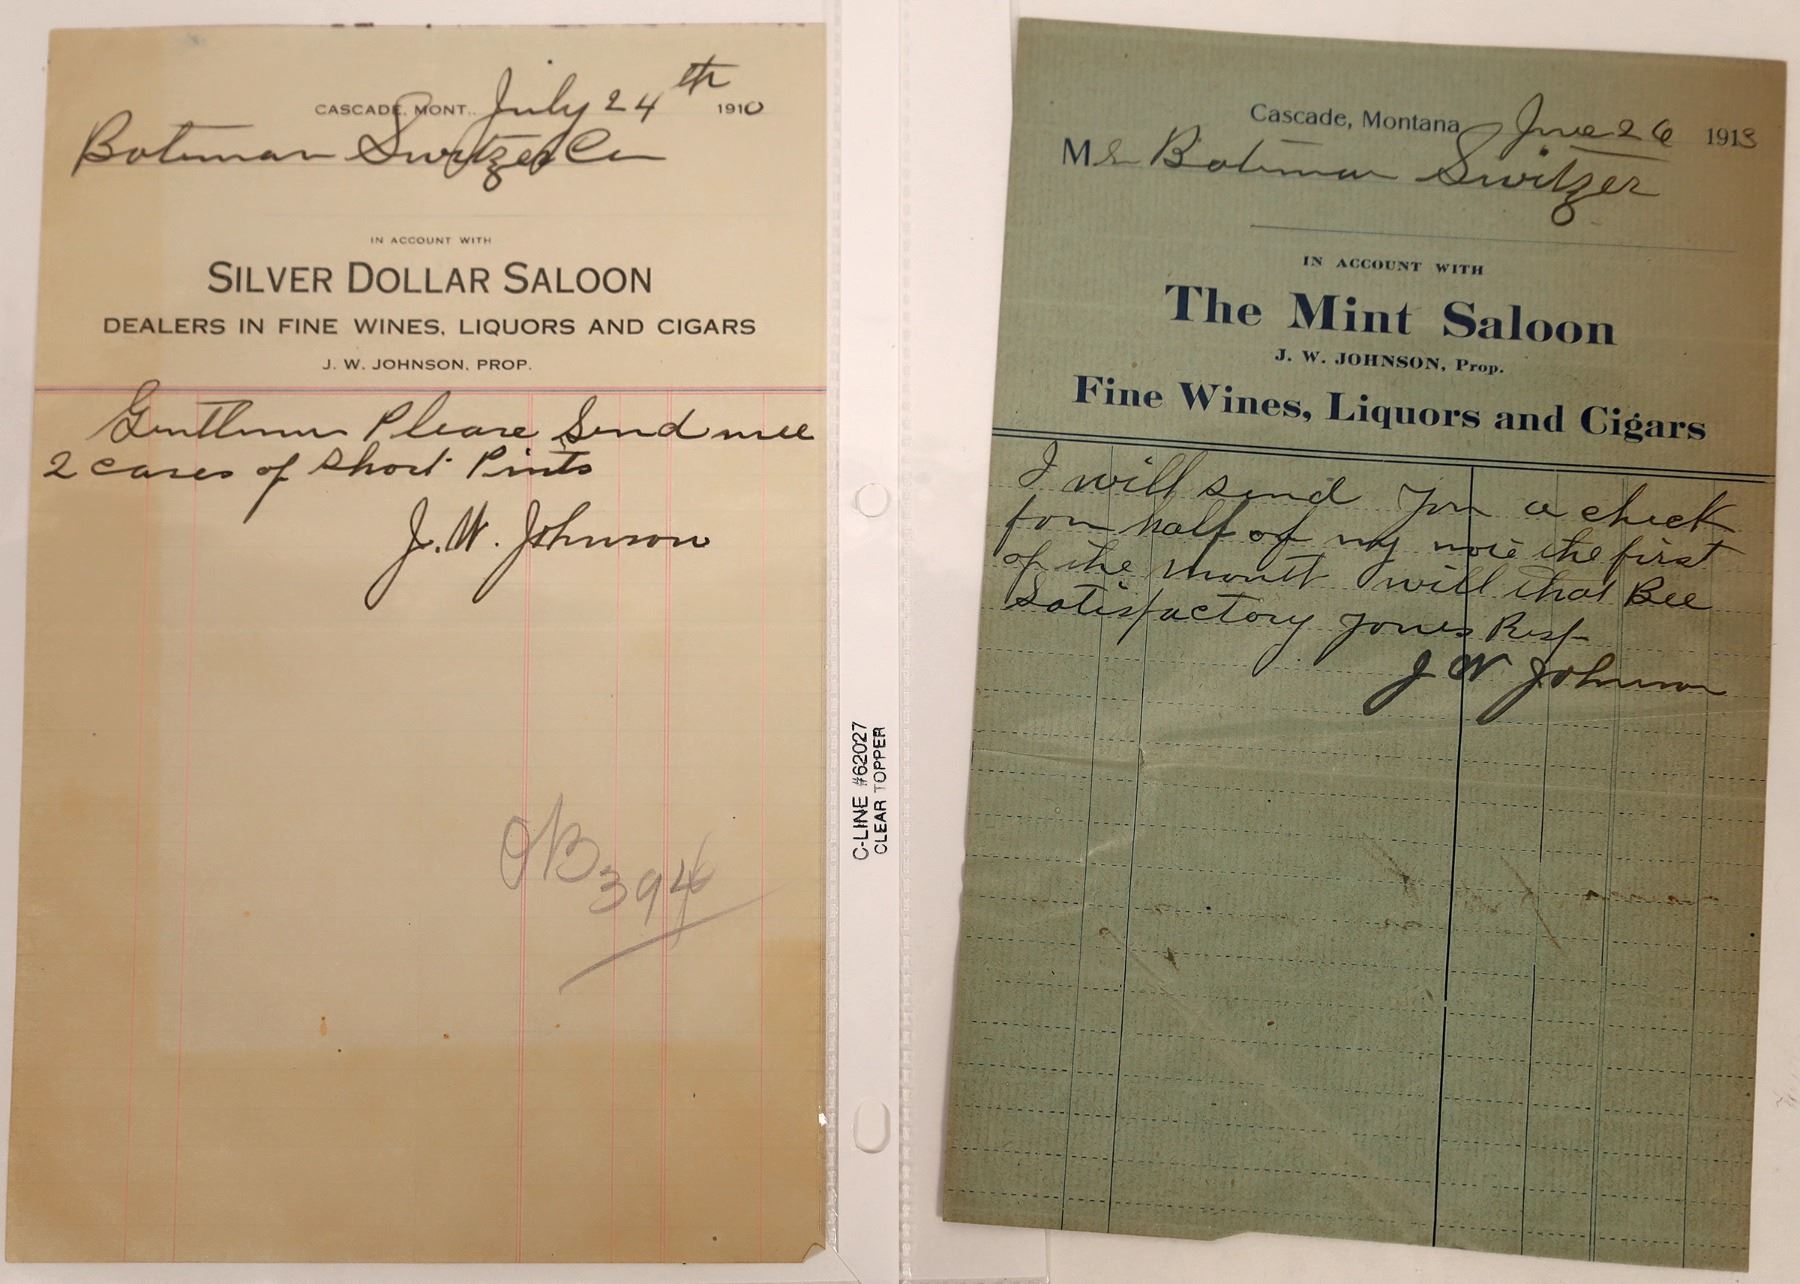 CASCADE, MONT., July 24th 1910
Bateman Switzer Co
IN ACCOUNT WITH
SILVER DOLLAR SALOON
DEALERS IN FINE WINES, LIQUORS AND CIGARS
J. W. JOHNSON, PROP.
Gentlemen Please Send mee
2 cases of Short Pints
J. W. Johnson
394
C-LINE #62027
CLEAR TOPPER
Cascade, Montana June 26 1913
Mr Bateman Switzer
IN ACCOUNT WITH
The Mint Saloon
J. W. JOHNSON, Prop.
Fine Wines, Liquors and Cigars
I will send you a check
for half of my note the first
of the month will that Bee
Satisfactory Yours Resp
J W Johnson